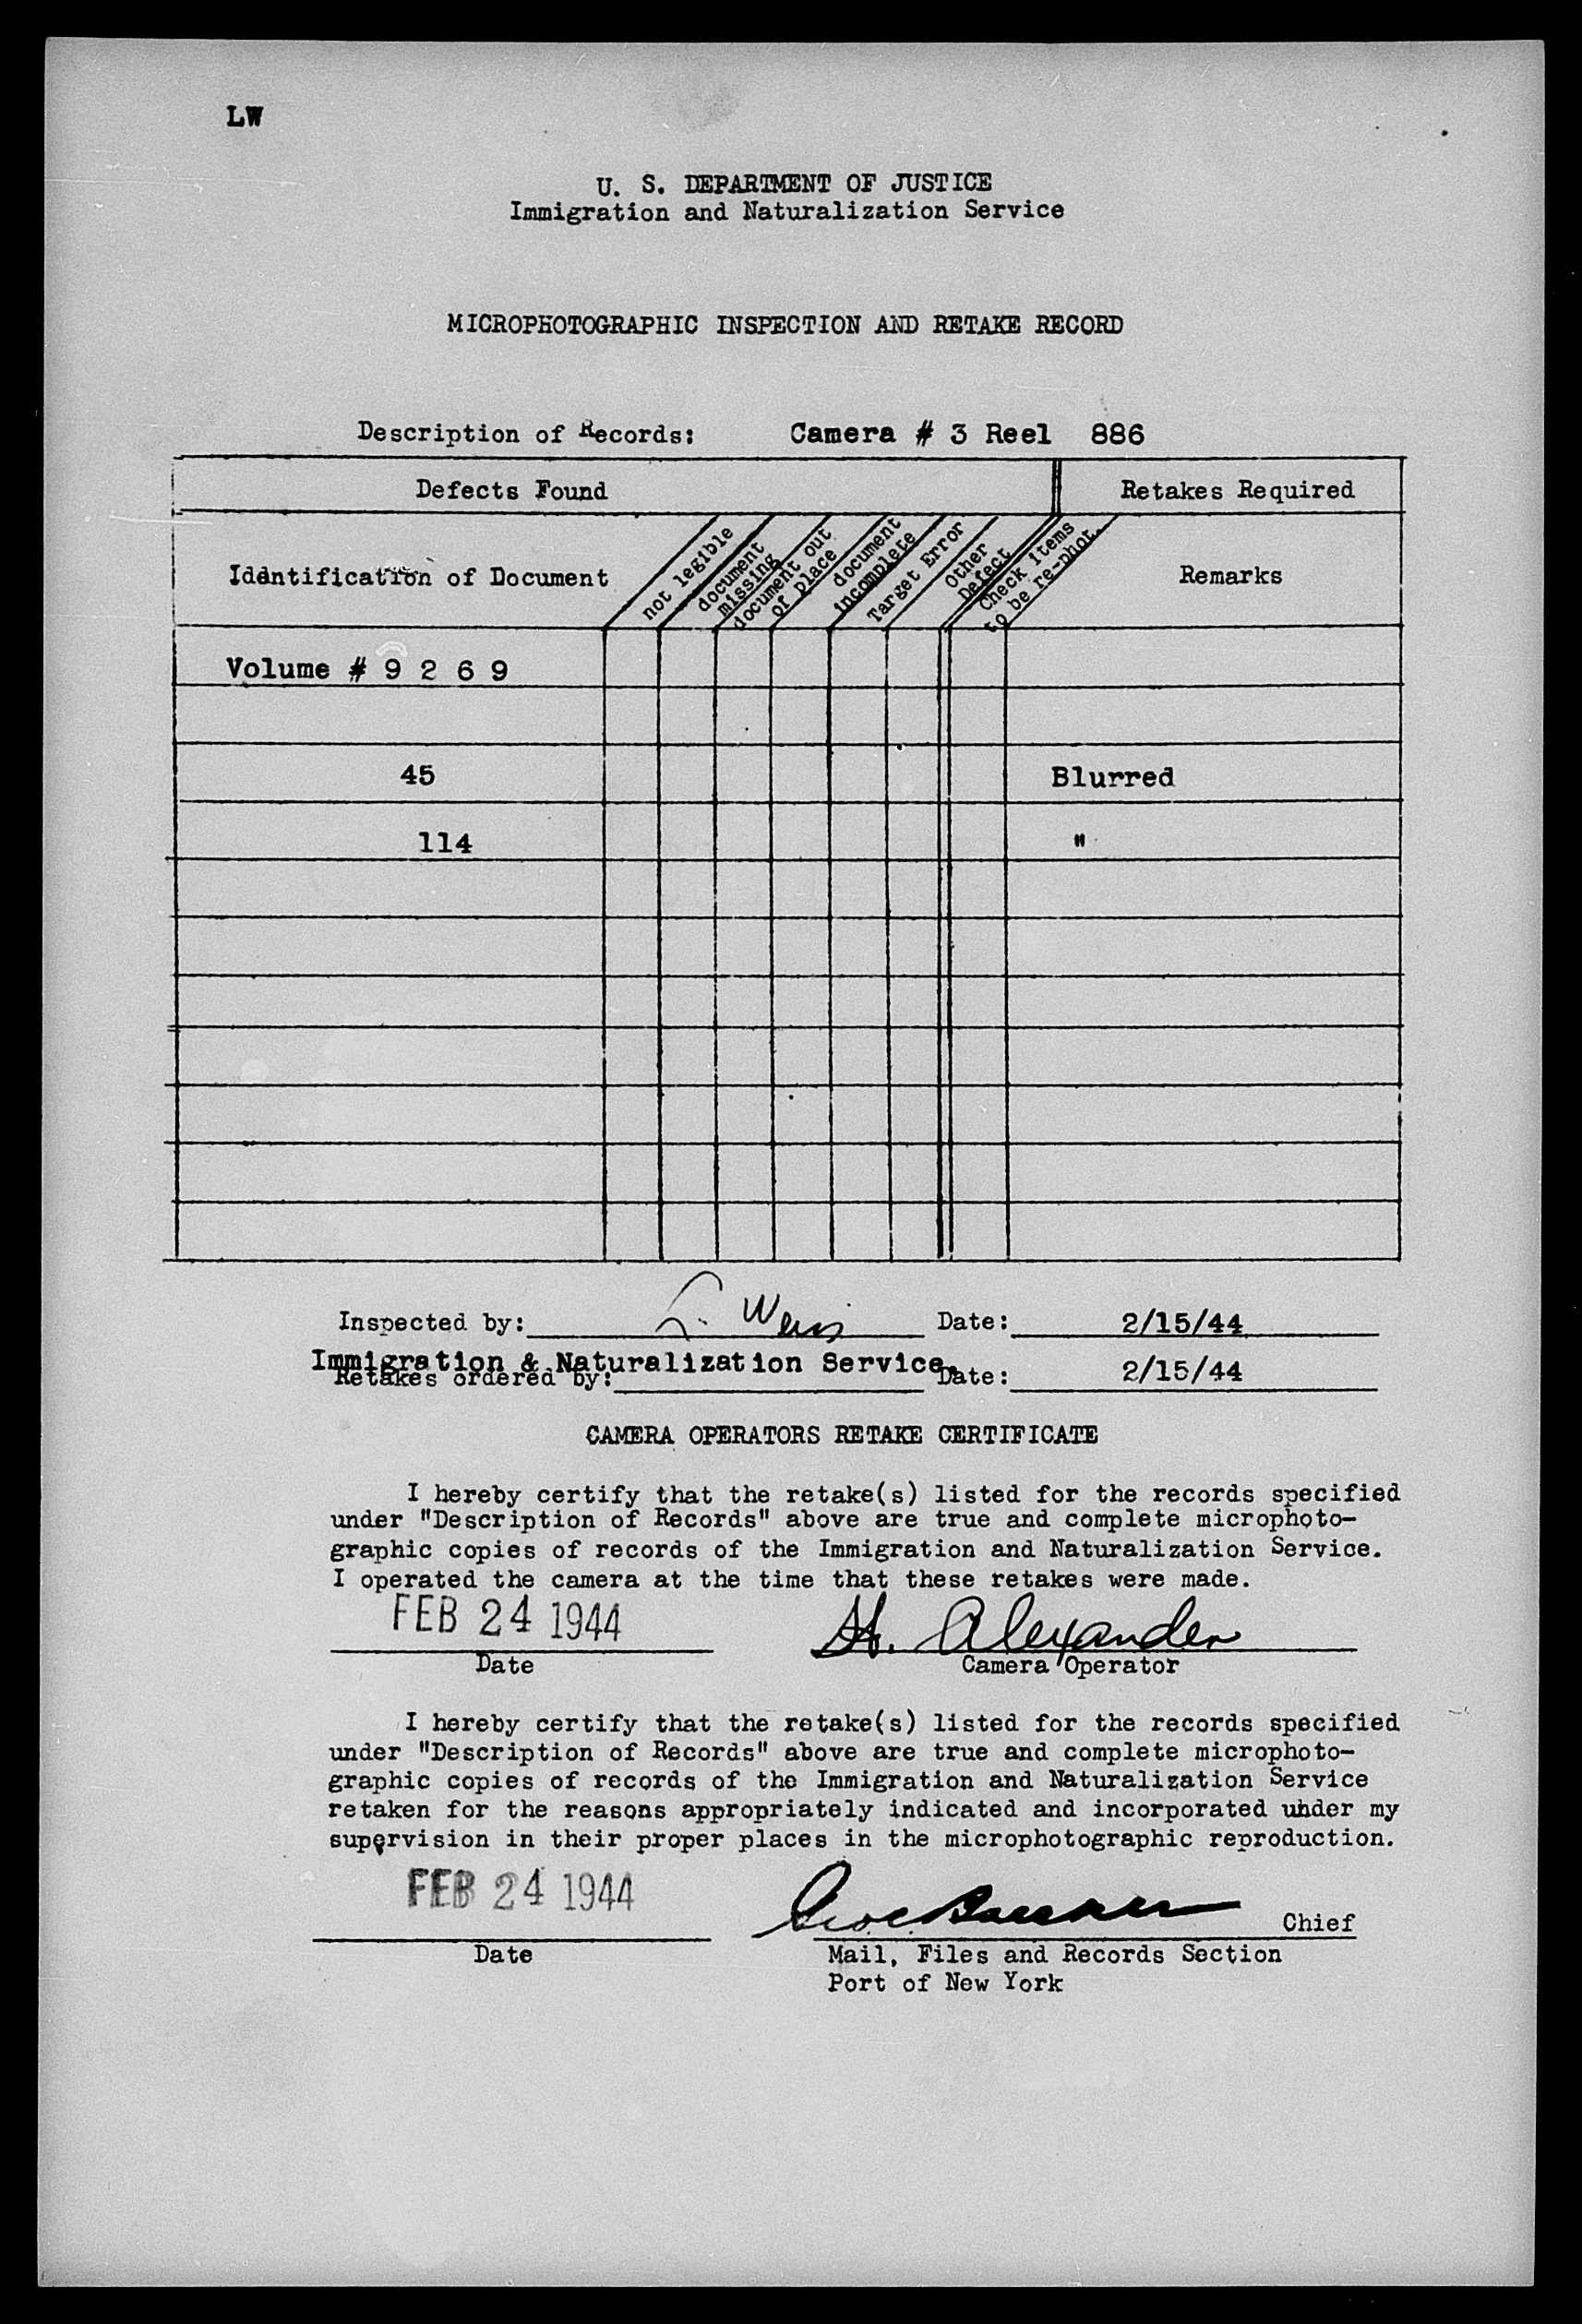 LW
U. S. DEPARTMENT OF JUSTICE
Immigration and Naturalization Service
MICROPHOTOGRAPHIC INSPECTION AND RETAKE RECORD
Description of Records: Camera # 3 Reel 886
Defects Found Retakes Required
Identification of Document
not legible
document missing
document out of place
document incomplete
Target Error
Other Defect
Check items to be re-phot.
Remarks
Volume # 9 2 6 9
45 Blurred
114 "
Inspected by: L. Weiss Date: 2/15/44
Immigration & Naturalization Service.
Retakes ordered by: Date: 2/15/44
CAMERA OPERATORS RETAKE CERTIFICATE
I hereby certify that the retake(s) listed for the records specified
under "Description of Records" above are true and complete microphoto-
graphic copies of records of the Immigration and Naturalization Service.
I operated the camera at the time that these retakes were made.
FEB 24 1944 H. Alexander
Date Camera Operator
I hereby certify that the retake(s) listed for the records specified
under "Description of Records" above are true and complete microphoto-
graphic copies of records of the Immigration and Naturalization Service
retaken for the reasons appropriately indicated and incorporated under my
supervision in their proper places in the microphotographic reproduction.
FEB 24 1944 Chief
Date Mail, Files and Records Section
Port of New York